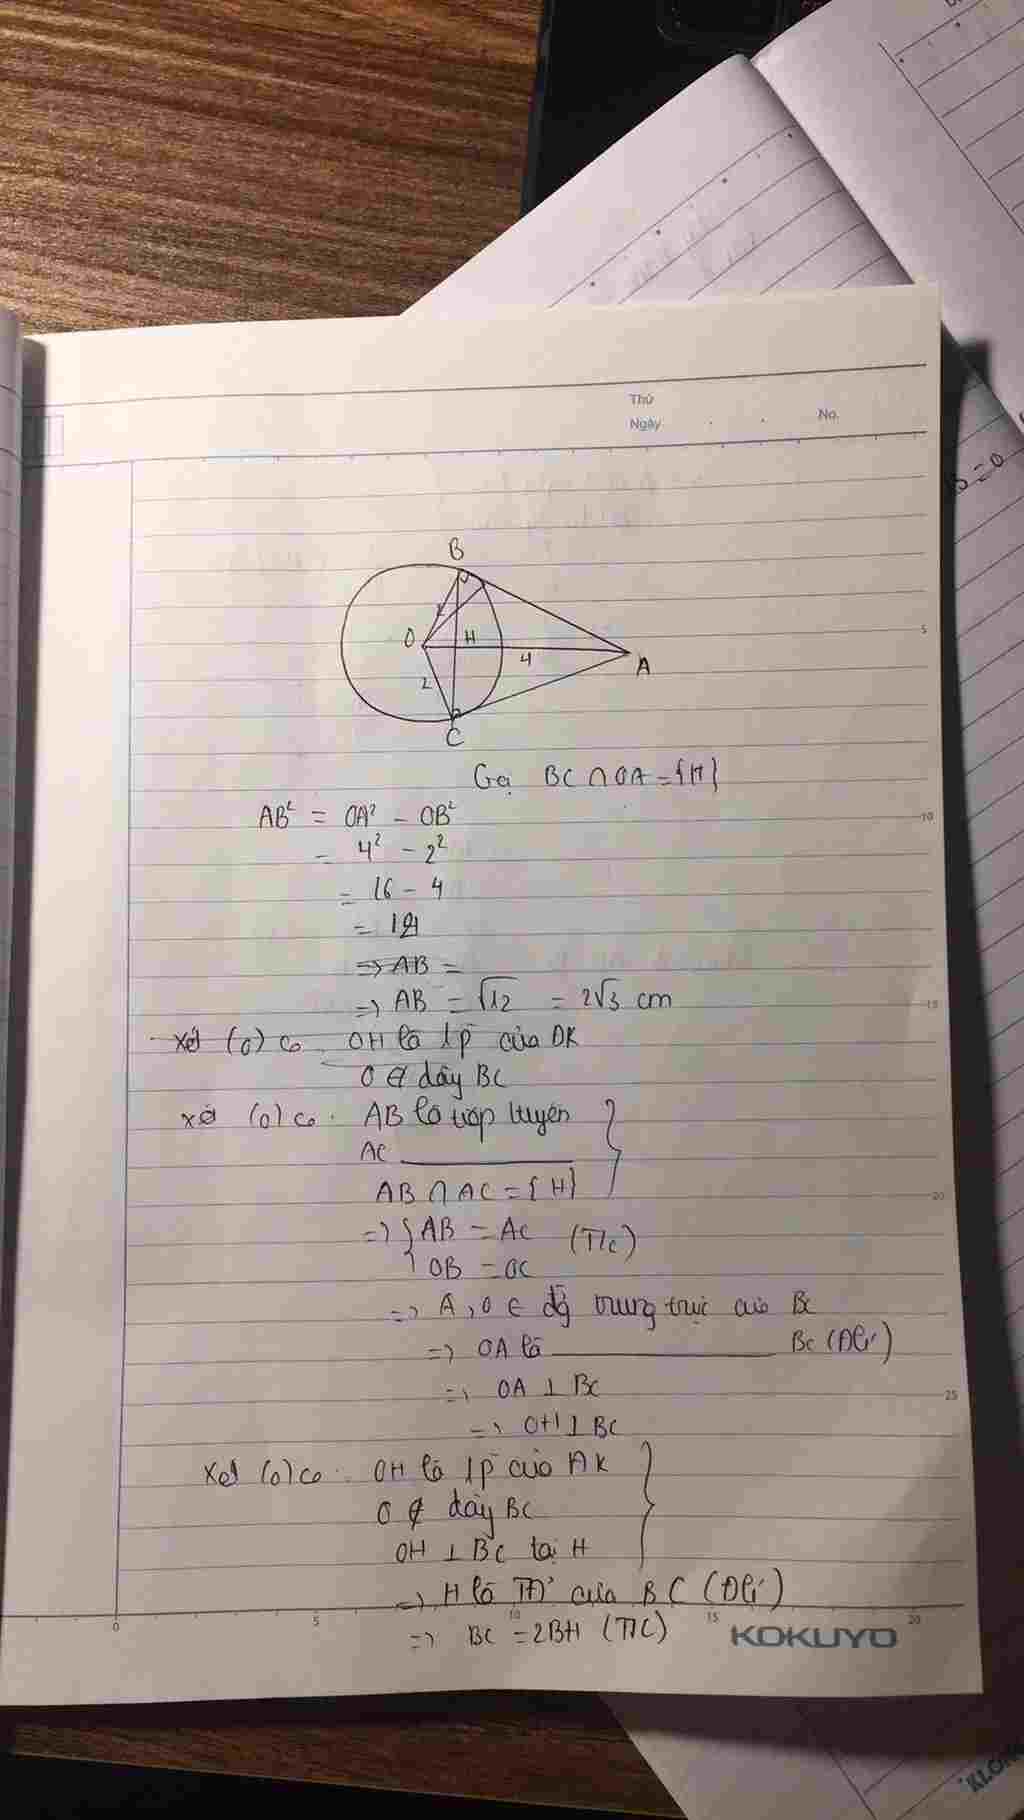 Thứ
Ngày . . No.
B = 0
B
O H A
2 4
2
C
Gọi BC ∩ OA = {H}
AB² = OA² - OB²
= 4² - 2²
= 16 - 4
= 12
=> AB =
=> AB = √12 = 2√3 cm
Xét (O) có OH là 1 p̄ của ĐK
O ∉ dây BC
Xét (O) có : AB là tiếp tuyến
AC ________
AB ∩ AC = {H}
=> { AB = AC (T/c)
OB = OC
=> A, O ∈ đg̃ trung trực của BC
=> OA là ________ BC (Đlí)
=> OA ⊥ BC
=> OH ⊥ BC
Xét (O) có : OH là 1 p̄ của AK
O ∉ dây BC
OH ⊥ BC tại H
=> H là của BC (Đlí)
=> BC = 2BH (T/C)
5
10
15
20
25
0 5 10 15 20
KOKUYO